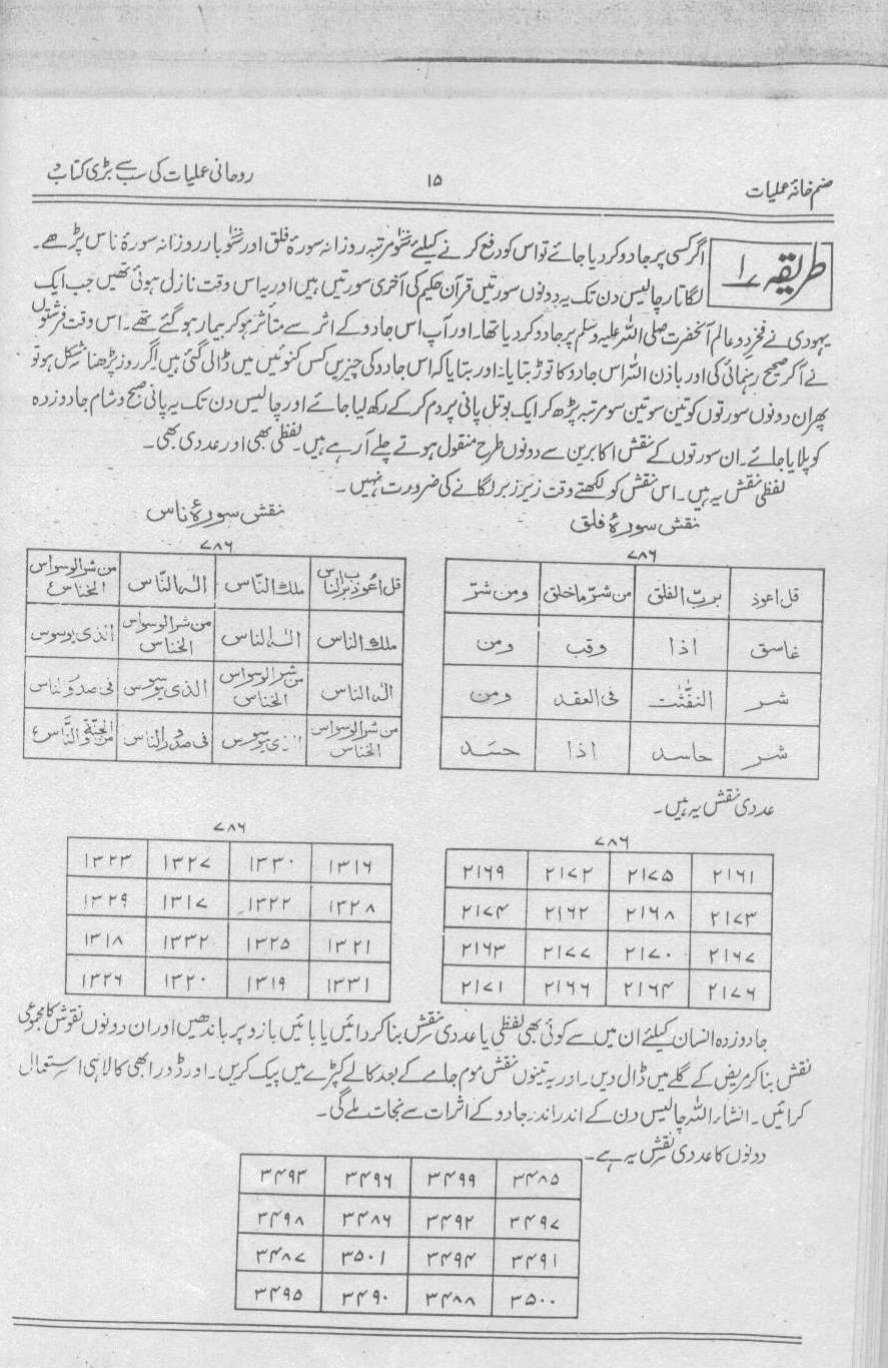 صنم خانۂ عملیات ۱۵ روحانی عملیات کی سب سے بڑی کتاب
طریقہ ۱
اگر کسی پر جادو کر دیا جائے تو اس کو دفع کرنے کیلئے سو مرتبہ روزانہ سورۂ فلق اور سو بار روزانہ سورۂ ناس پڑھے۔
لگاتار چالیس دن تک یہ دونوں سورتیں قرآن حکیم کی آخری سورتیں ہیں اور یہ اس وقت نازل ہوئی تھیں جب ایک
یہودی نے فخرِ دو عالم آنحضرت صلی اللہ علیہ وسلم پر جادو کر دیا تھا۔ اور آپ اس جادو کے اثر سے متأثر ہو کر بیمار ہو گئے تھے۔ اس وقت فرشتوں
نے آکر صحیح رہنمائی کی اور باذن اللہ اس جادو کا توڑ بتایا۔ اور بتایا کہ اس جادو کی چیزیں کس کنوئیں میں ڈالی گئی ہیں اگر روز پڑھنا مشکل ہو تو
پھر ان دونوں سورتوں کو تین سو تین سو مرتبہ پڑھ کر ایک بوتل پانی پر دم کر کے رکھ لیا جائے اور چالیس دن تک یہ پانی صبح و شام جادو زدہ
کو پلایا جائے۔ ان سورتوں کے نقش اکابرین سے دونوں طرح منقول ہوتے چلے آرہے ہیں۔ لفظی بھی اور عددی بھی۔
لفظی نقش یہ ہیں۔ اس نقش کو لکھتے وقت زیر زبر لگانے کی ضرورت نہیں۔
نقش سورۂ فلق
۷۸۶
قل اعوذ بربّ الفلق من شرّ ما خلق ومن شرّ
غاسق اذا وقب ومن
شر النفّٰثٰت فی العقد ومن
شر حاسد اذا حسَد
نقش سورۂ ناس
۷۸۶
قل اعُوذ بربّ الناس ملك النّاس الٰه النّاس من شر الوسواس الخناس
ملك الناس الٰه الناس من شر الوسواس الخناس الذی یوسوس
الٰه الناس من شر الوسواس الخناس الذی یوسوس فی صدور الناس
من شر الوسواس الخناس الذی یوسوس فی صدور الناس من الجنّة والنّاس
عددی نقش یہ ہیں۔
۷۸۶
۲۱۶۱ ۲۱۷۵ ۲۱۷۲ ۲۱۶۹
۲۱۷۳ ۲۱۶۸ ۲۱۶۲ ۲۱۷۴
۲۱۶۷ ۲۱۷۰ ۲۱۷۷ ۲۱۶۳
۲۱۷۶ ۲۱۶۴ ۲۱۶۶ ۲۱۷۱
۷۸۶
۱۳۱۶ ۱۳۳۰ ۱۳۲۷ ۱۳۲۳
۱۳۲۸ ۱۳۲۲ ۱۳۱۷ ۱۳۲۹
۱۳۲۱ ۱۳۲۵ ۱۳۳۲ ۱۳۱۸
۱۳۳۱ ۱۳۱۹ ۱۳۲۰ ۱۳۲۶
جادو زدہ انسان کیلئے ان میں سے کوئی بھی لفظی یا عددی نقش بنا کر دائیں یا بائیں بازو پر باندھیں اور ان دونوں نقوش کا مجموعی
نقش بنا کر مریض کے گلے میں ڈال دیں۔ اور یہ تینوں نقش موم جامے کے بعد کالے کپڑے میں پیک کریں۔ اور ڈورا بھی کالا ہی استعمال
کرائیں۔ انشاء اللہ چالیس دن کے اندر اندر جادو کے اثرات سے نجات ملے گی۔
دونوں کا عددی نقش یہ ہے۔
۳۴۸۵ ۳۴۹۹ ۳۴۹۶ ۳۴۹۳
۳۴۹۷ ۳۴۹۲ ۳۴۸۶ ۳۴۹۸
۳۴۹۱ ۳۴۹۴ ۳۵۰۱ ۳۴۸۷
۳۵۰۰ ۳۴۸۸ ۳۴۹۰ ۳۴۹۵